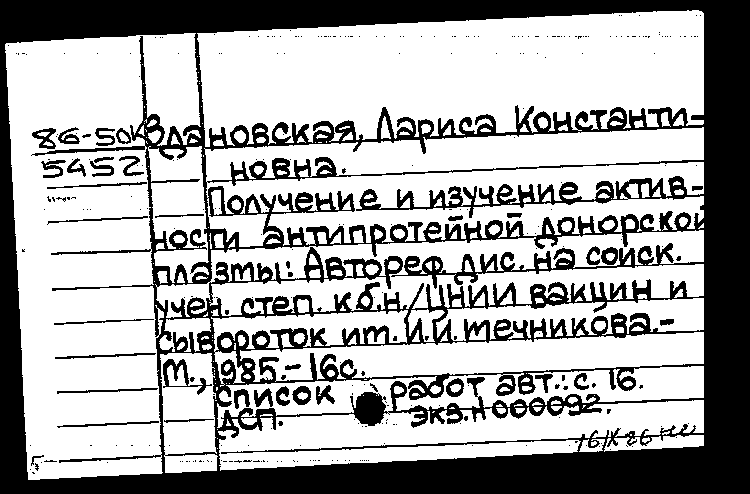 86-50К Здановская, Лариса Константи-
5452 новна.
Получение и изучение актив-
ности антипротейной донорской
плазмы: Автореф. дис. на соиск.
учен. степ. к.б.н./ЦНИИ вакцин и
сывороток им. И.И. Мечникова.-
М., 1985.- 16с.
Список работ авт.: с. 16.
ДСП. Экз. N 000092.
16/IX 86